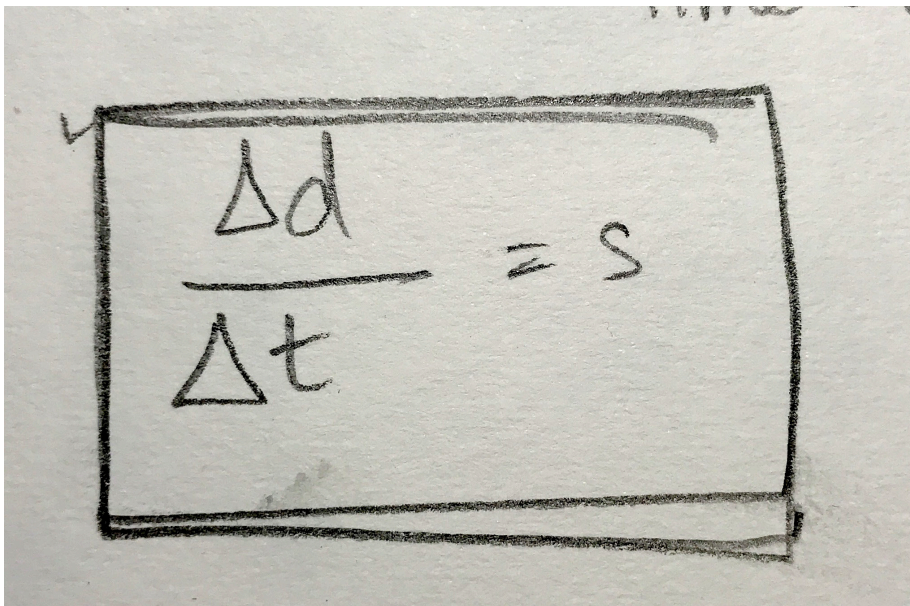 Δd
Δt = s